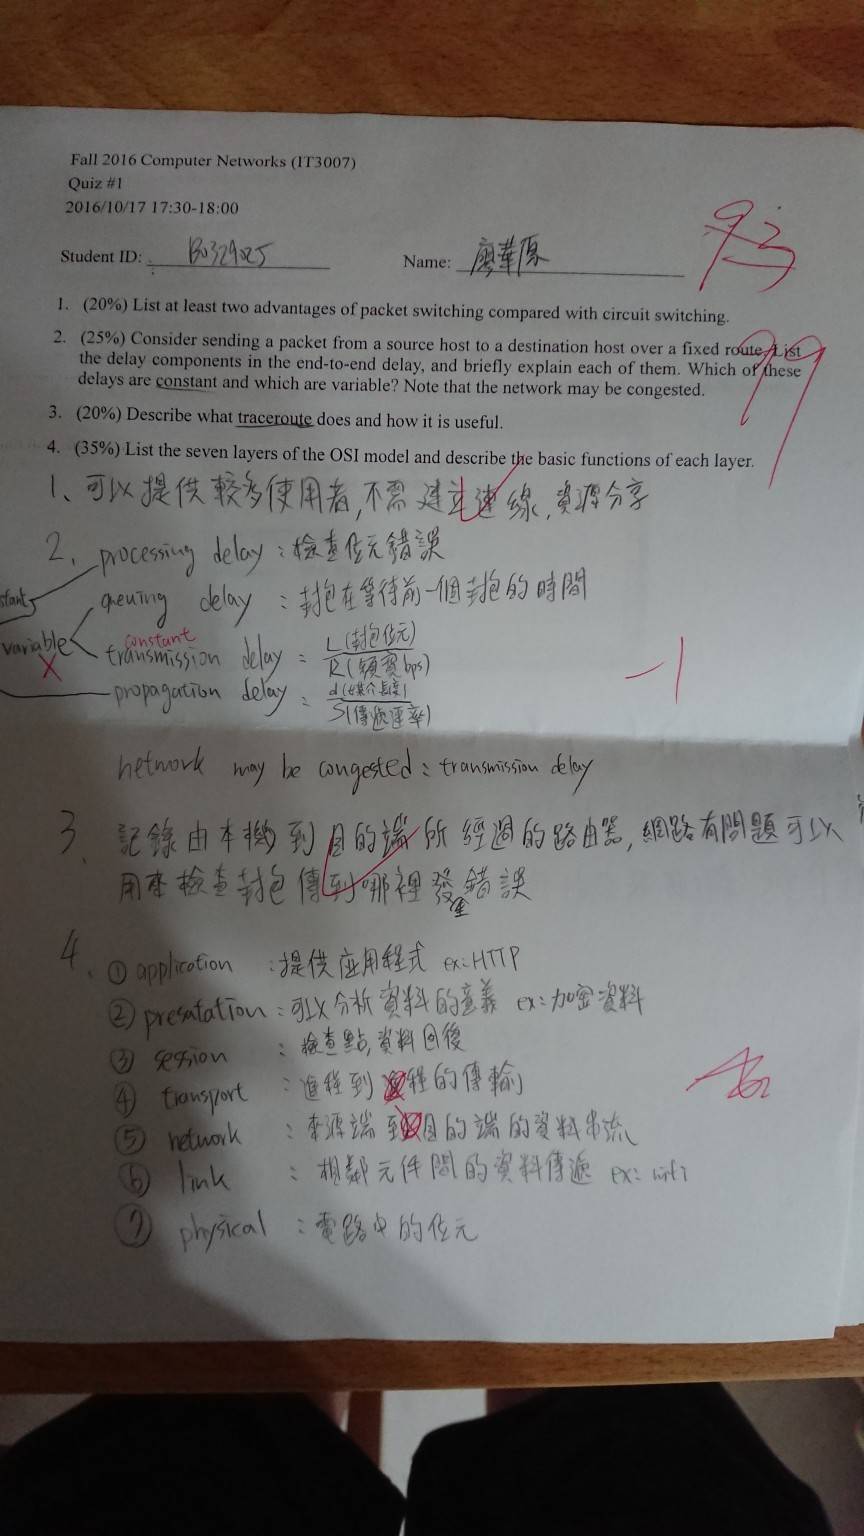 Fall 2016 Computer Networks (IT3007)
Quiz #1
2016/10/17 17:30-18:00
93
Student ID: B0329025 Name: 廖華原
99
1. (20%) List at least two advantages of packet switching compared with circuit switching.
2. (25%) Consider sending a packet from a source host to a destination host over a fixed route. List
the delay components in the end-to-end delay, and briefly explain each of them. Which of these
delays are constant and which are variable? Note that the network may be congested.
3. (20%) Describe what traceroute does and how it is useful.
4. (35%) List the seven layers of the OSI model and describe the basic functions of each layer.
1、可以提供較多使用者,不需建立連線,資源分享
2. processing delay:檢查位元錯誤
stant queuing delay:封包在等待前一個封包的時間
variable constant
transmission delay = L(封包位元) / R(頻寬bps) -1
propagation delay = d(媒介長度) / S(傳遞速率)
network may be congested:transmission delay
3、記錄由本機到目的端所經過的路由器,網路有問題可以
用來檢查封包傳到哪裡發生錯誤
4、① application :提供应用程式 ex:HTTP
② presentation:可以分析資料的意義 ex:加密資料
③ session :檢查點,資料回復
④ transport :進程到程的傳輸
⑤ network :來源端到目的端的資料串流
⑥ link :相鄰元件間的資料傳遞 ex:wifi
⑦ physical :電路中的位元